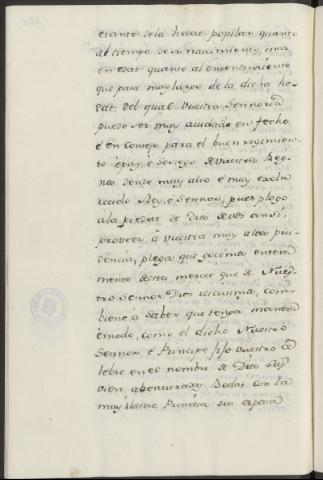 quanto
al tiempo de su nascimiento, mas
en edat quanto al entendimiento
que para muy largo de la dicha he-
dat, del qual vuestra Sennoria
puede ser muy ayudado en fecho
é en consejo para el buen regimien-
to é paz é sosiego de vuestros Reg-
nos donde muy alto é muy escla-
recido Rey, é Sennor, pues plogo
á la piedat de Dios de vos ansi
proveer á vuestra muy alta pru-
dencia, plega que gocemos entera-
mente desta mercet que de Nues-
tro Sennor Dios recevimos, con-
biene á saber que tenga manera
é modo, como el dicho Nuestro
Sennor é Principe fijo vuestro ce-
lebre en el nombre de Dios sus
vien abenturadas Bodas con la
muy ilustre Princesa su esposa